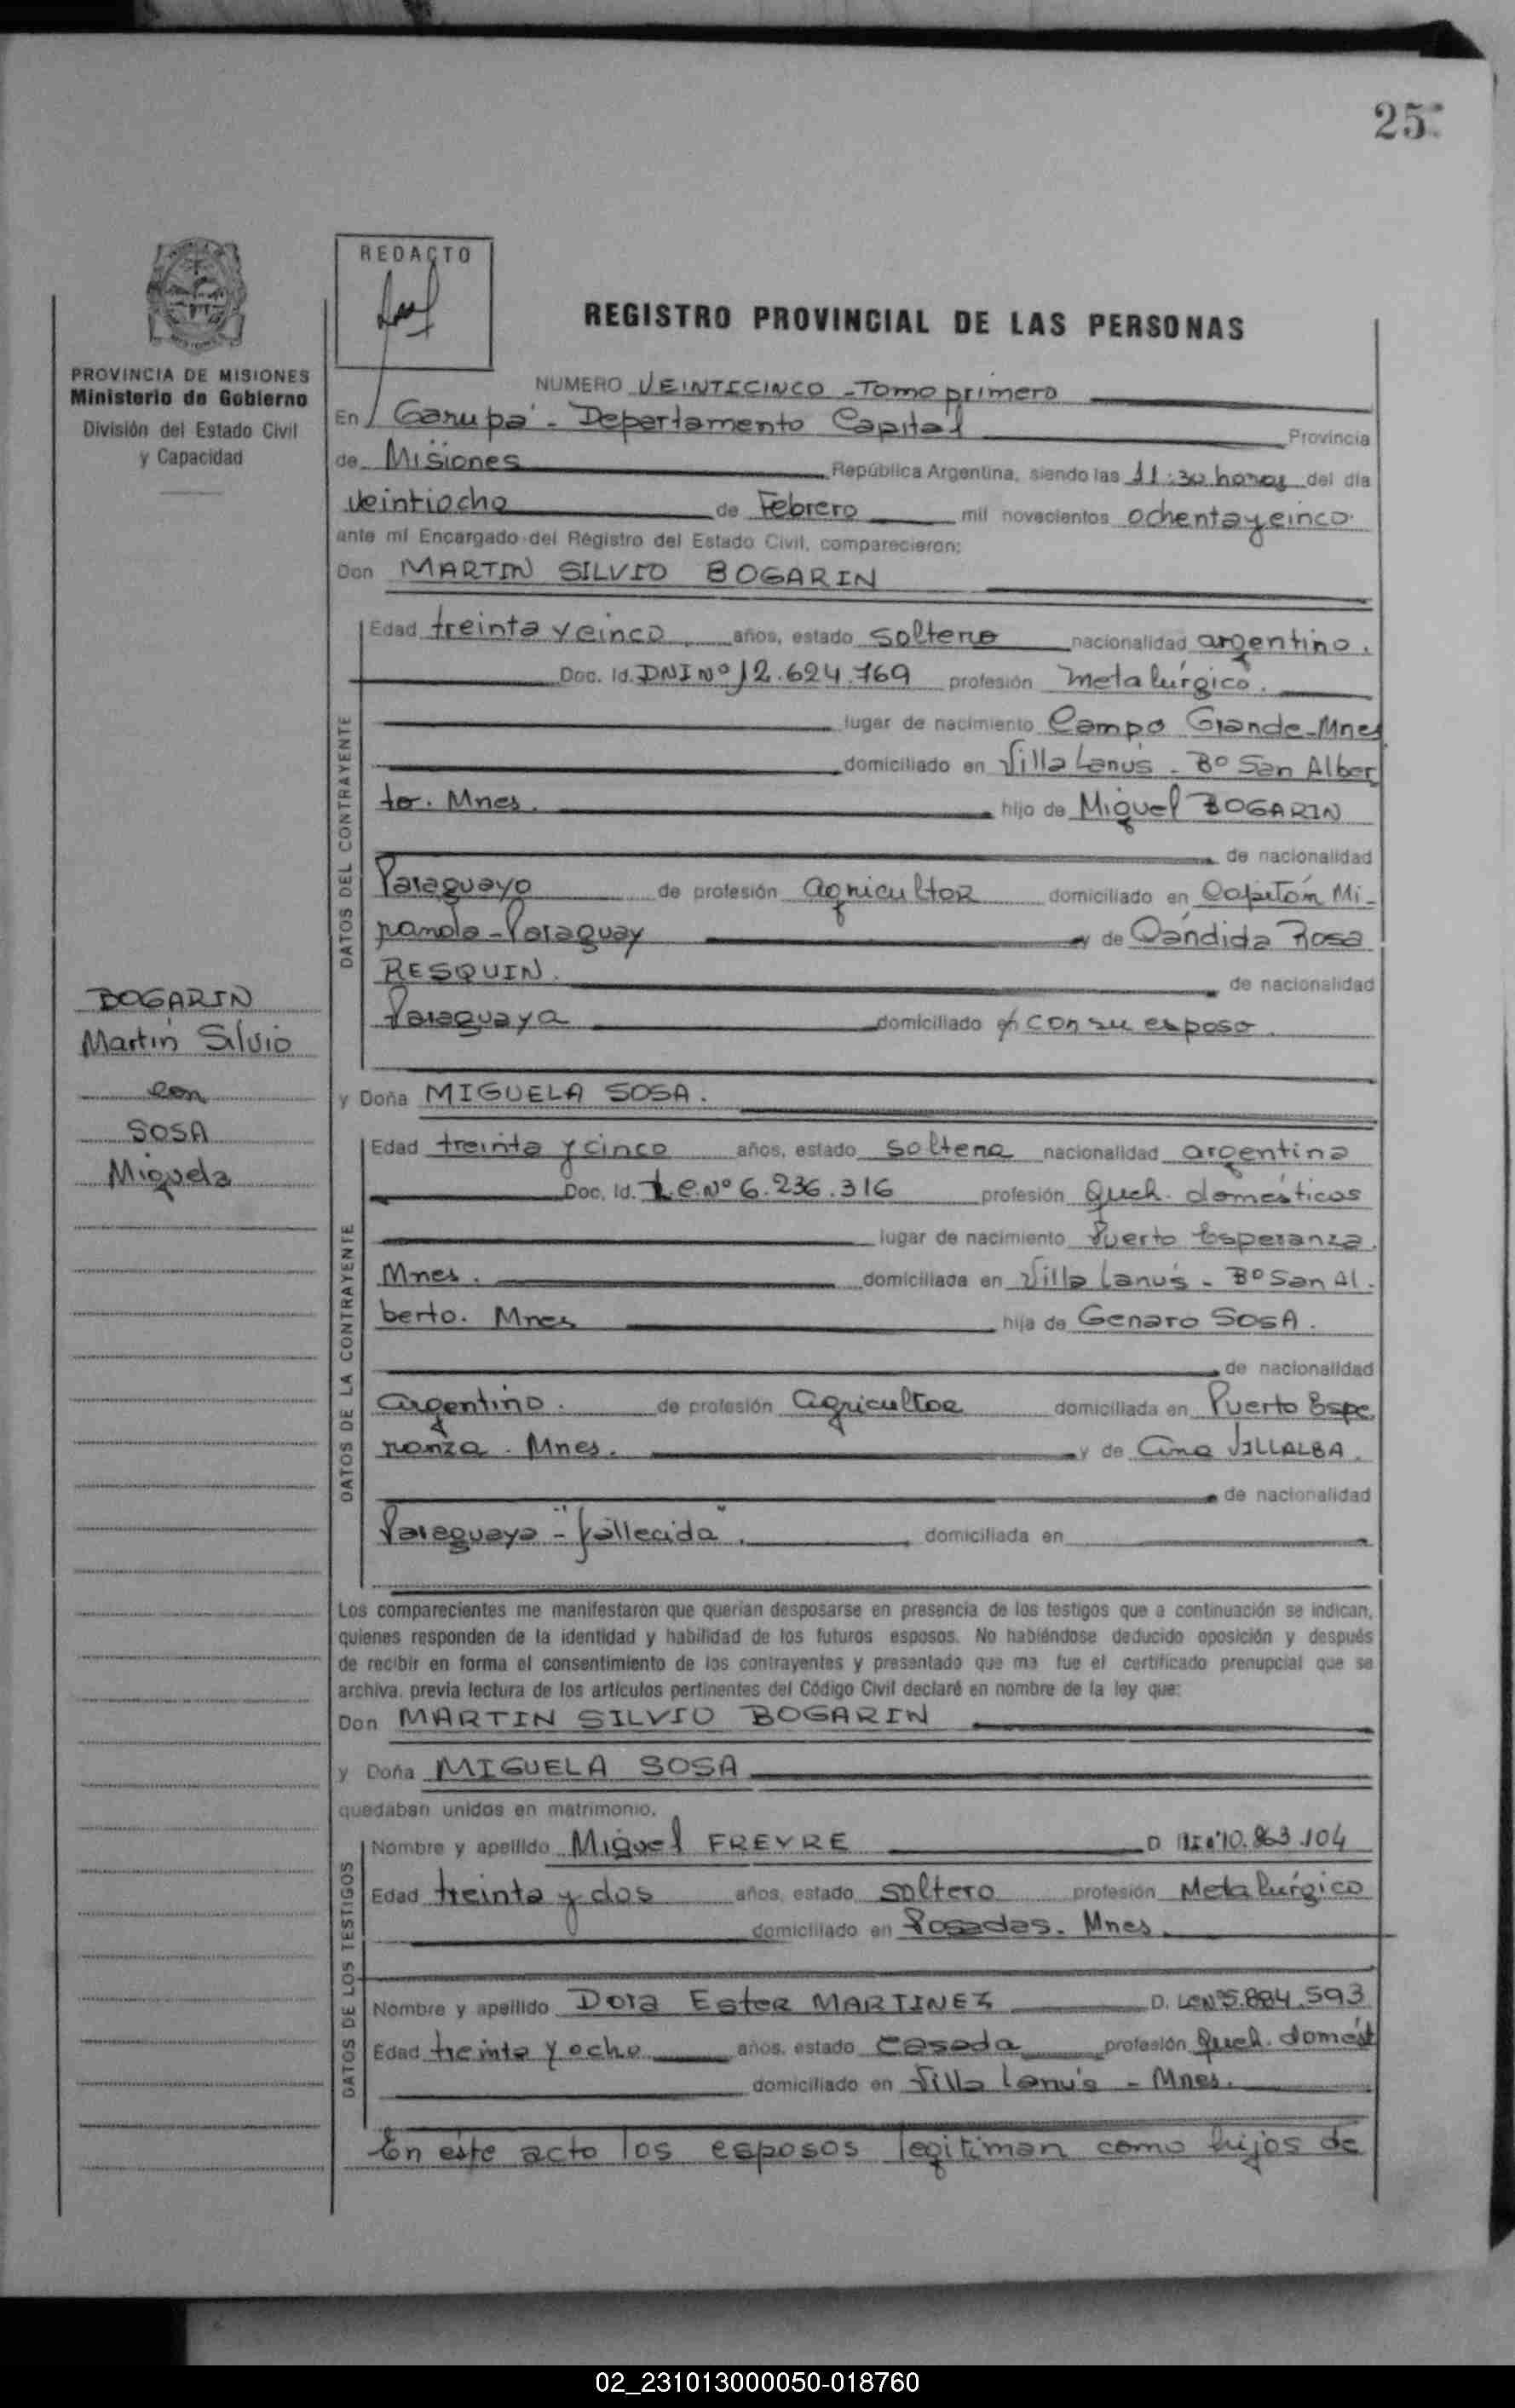 25
REDACTO
REGISTRO PROVINCIAL DE LAS PERSONAS
PROVINCIA DE MISIONES
Ministerio de Gobierno
División del Estado Civil
y Capacidad
NUMERO VEINTICINCO - Tomo primero
En Garupá - Departamento Capital Provincia
de Misiones República Argentina, siendo las 11:30 horas del día
veintiocho de Febrero mil novecientos ochenta y cinco.
ante mí Encargado del Registro del Estado Civil, comparecieron:
Don MARTIN SILVIO BOGARIN
DATOS DEL CONTRAYENTE
Edad treinta y cinco años, estado soltero nacionalidad argentino.
Doc. Id. DNI Nº 12.624.769 profesión metalúrgico.
lugar de nacimiento Campo Grande - Mnes
domiciliado en Villa Lanús - Bº San Alber
to. Mnes. hijo de Miguel BOGARIN
de nacionalidad
Paraguayo de profesión agricultor domiciliado en Capitán Mi-
randa - Paraguay y de Cándida Rosa
RESQUIN. de nacionalidad
Paraguaya domiciliado con su esposo.
BOGARIN
Martín Silvio
con
SOSA
Miguela
y Doña MIGUELA SOSA.
DATOS DE LA CONTRAYENTE
Edad treinta y cinco años, estado soltera nacionalidad argentina
Doc. Id. L.C. Nº 6.236.316 profesión Queh. domésticos
lugar de nacimiento Puerto Esperanza.
Mnes. domiciliada en Villa Lanús - Bº San Al-
berto. Mnes hija de Genaro SOSA.
de nacionalidad
argentino. de profesión agricultor domiciliada en Puerto Espe
ranza. Mnes. y de Ana VILLALBA.
de nacionalidad
Paraguaya - "fallecida". domiciliada en
Los comparecientes me manifestaron que querían desposarse en presencia de los testigos que a continuación se indican,
quienes responden de la identidad y habilidad de los futuros esposos. No habiéndose deducido oposición y después
de recibir en forma el consentimiento de los contrayentes y presentado que me fue el certificado prenupcial que se
archiva, previa lectura de los artículos pertinentes del Código Civil declaré en nombre de la ley que:
Don MARTIN SILVIO BOGARIN
y Doña MIGUELA SOSA
quedaban unidos en matrimonio.
DATOS DE LOS TESTIGOS
Nombre y apellido Miguel FREYRE D 10.863.104
Edad treinta y dos años, estado soltero profesión Metalúrgico
domiciliado en Posadas. Mnes.
Nombre y apellido Dora Ester MARTINEZ D. LC Nº 5.884.593
Edad treinta y ocho años, estado Casada profesión Queh. domést
domiciliado en Villa Lanús - Mnes.
En este acto los esposos legitiman como hijos de
02_231013000050-018760